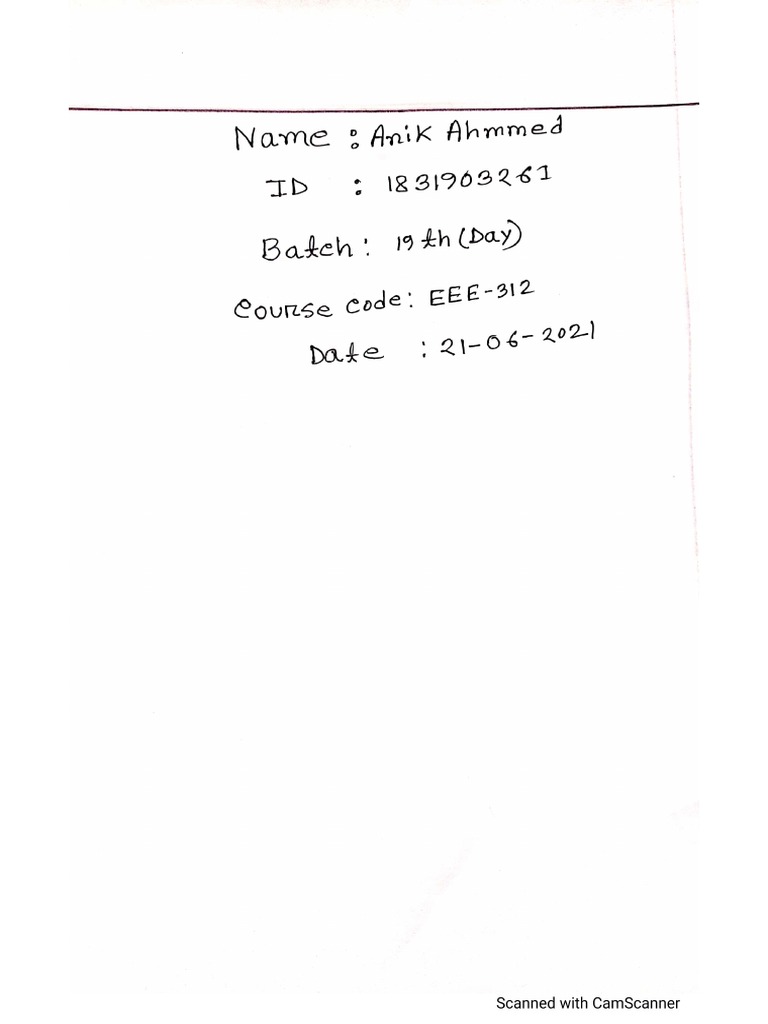 Name : Anik Ahmmed
ID : 1831903261
Batch : 19th (Day)
Course code : EEE-312
Date : 21-06-2021
Scanned with CamScanner